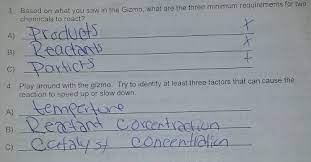 3. Based on what you saw in the Gizmo, what are the three minimum requirements for two
chemicals to react?
A) Products X
B) Reactants X
C) Particts +
4. Play around with the gizmo. Try to identify at least three factors that can cause the
reaction to speed up or slow down.
A) temperture
B) Reactant Concentraction
C) Catalyst Concentration